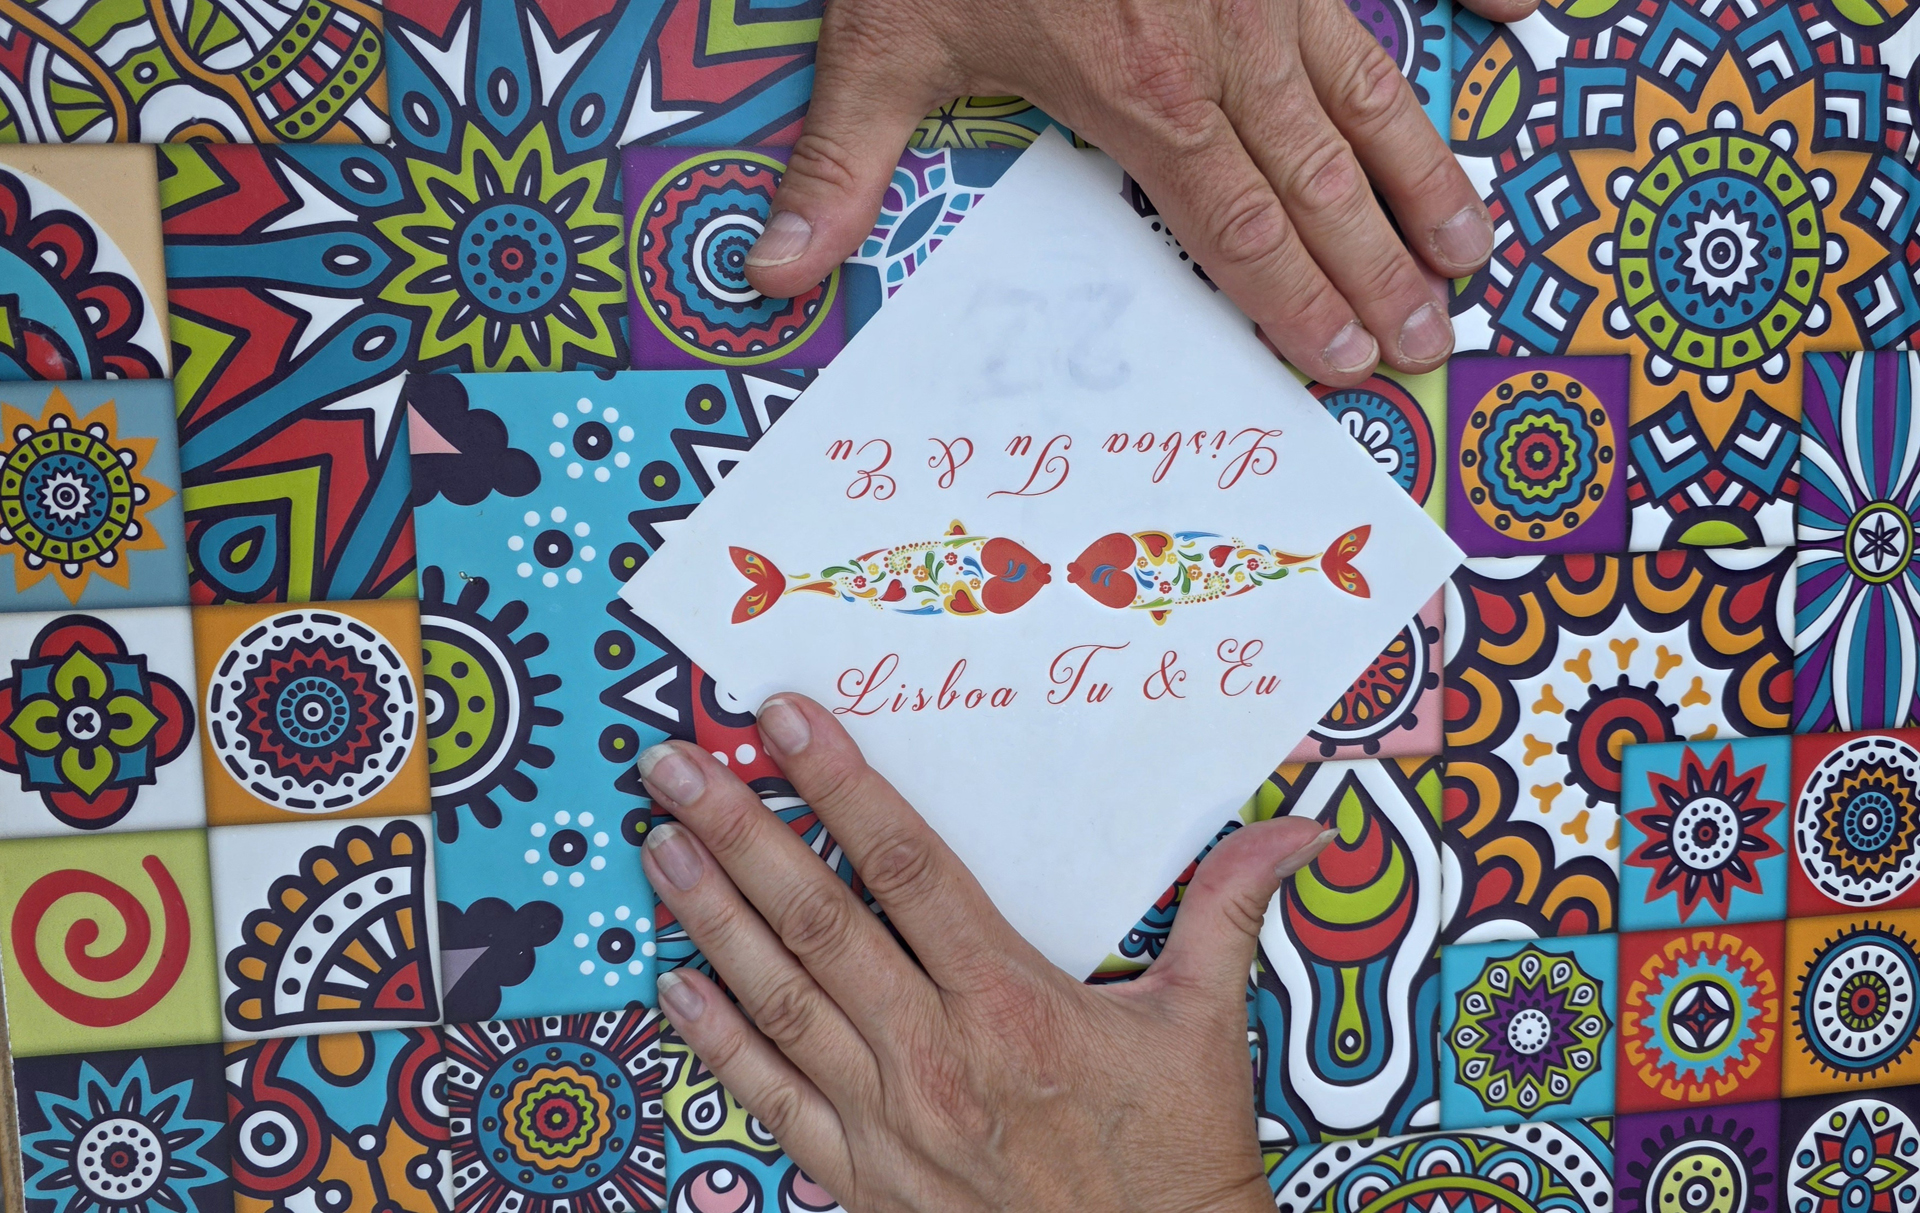 Lisboa Tu & Eu
Lisboa Tu & Eu